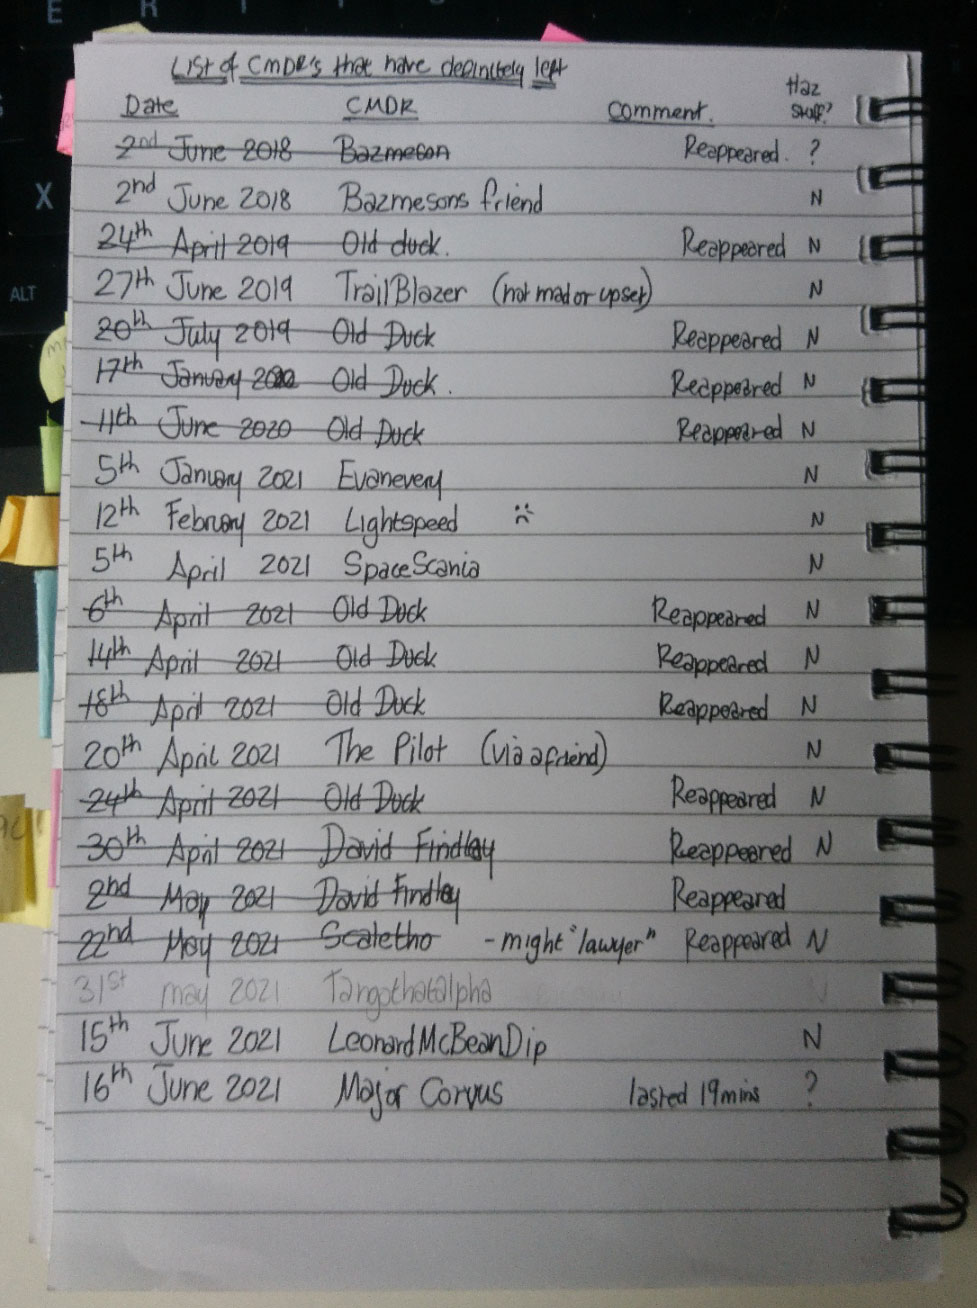 E R T
X
ALT
List of CMDR's that have definitely left
Date CMDR Comment. Haz Stuff?
2nd June 2018 Bazmeson Reappeared. ?
2nd June 2018 Bazmesons friend N
24th April 2019 Old duck. Reappeared N
27th June 2019 TrailBlazer (not mad or upset) N
20th July 2019 Old Duck Reappeared N
17th January 2020 Old Duck. Reappeared N
11th June 2020 Old Duck Reappeared N
5th January 2021 Evanevery N
12th February 2021 Lightspeed :( N
5th April 2021 SpaceScania N
6th April 2021 Old Duck Reappeared N
14th April 2021 Old Duck Reappeared N
18th April 2021 Old Duck Reappeared N
20th April 2021 The Pilot (via a friend) N
24th April 2021 Old Duck Reappeared N
30th April 2021 David Findlay Reappeared N
2nd May 2021 David Findlay Reappeared
22nd May 2021 Scaletho - might "lawyer" Reappeared N
31st may 2021 Tangothatalpha N
15th June 2021 LeonardMcBeanDip N
16th June 2021 Major Corvus lasted 19mins ?